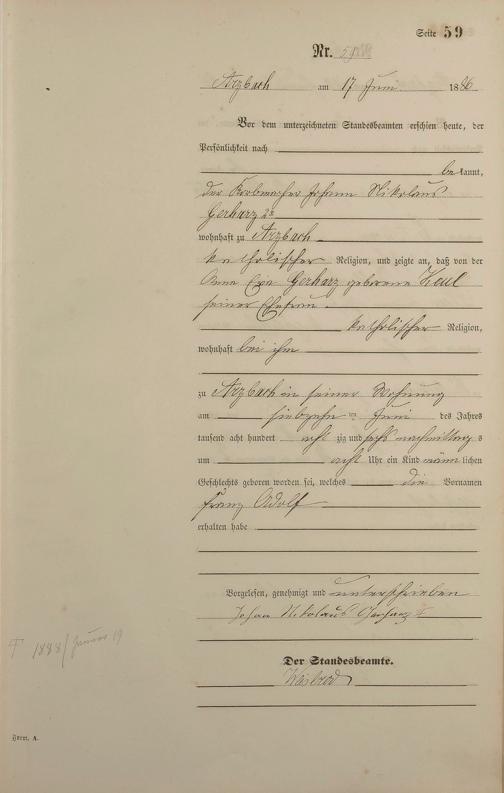 Seite 59
Nr. 59
Arzbach am 17 Juni 1886
Vor dem unterzeichneten Standesbeamten erschien heute, der
Persönlichkeit nach
bekannt,
der Korbmacher Johann Nikolaus
Gerharz 2r
wohnhaft zu Arzbach
katholischer Religion, und zeigte an, daß von der
Anna Eva Gerharz geborene Keul
seiner Ehefrau
katholischer Religion,
wohnhaft bei ihm
zu Arzbach in seiner Wohnung
am siebzehn ten Juni des Jahres
tausend acht hundert acht zig und sechs nachmittags
um acht Uhr ein Kind männlichen
Geschlechts geboren worden sei, welches die Vornamen
Franz Adolf
erhalten habe
Vorgelesen, genehmigt und unterschrieben
Johan Nikolaus Gerharz
Der Standesbeamte.
† 1888/Januar 19
Form. A.